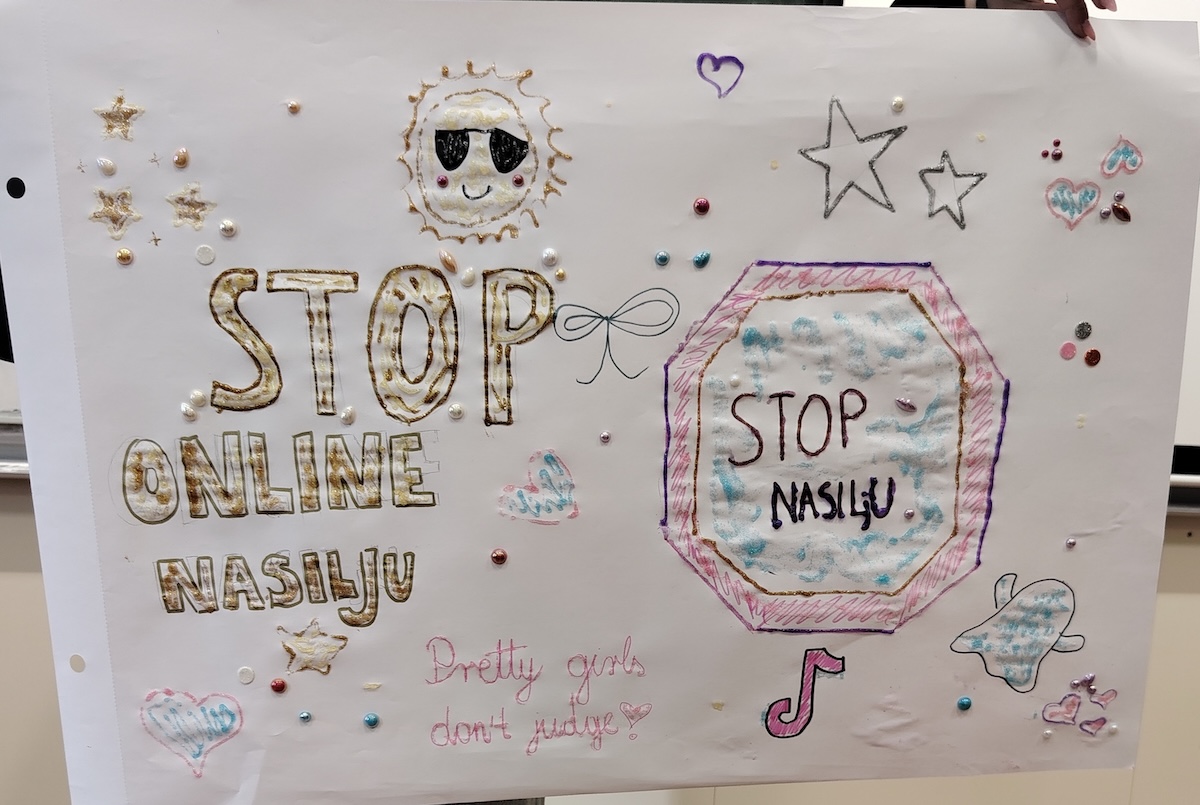 STOP
ONLINE
NASILJU
STOP
NASILjU
Pretty girls
don't judge!